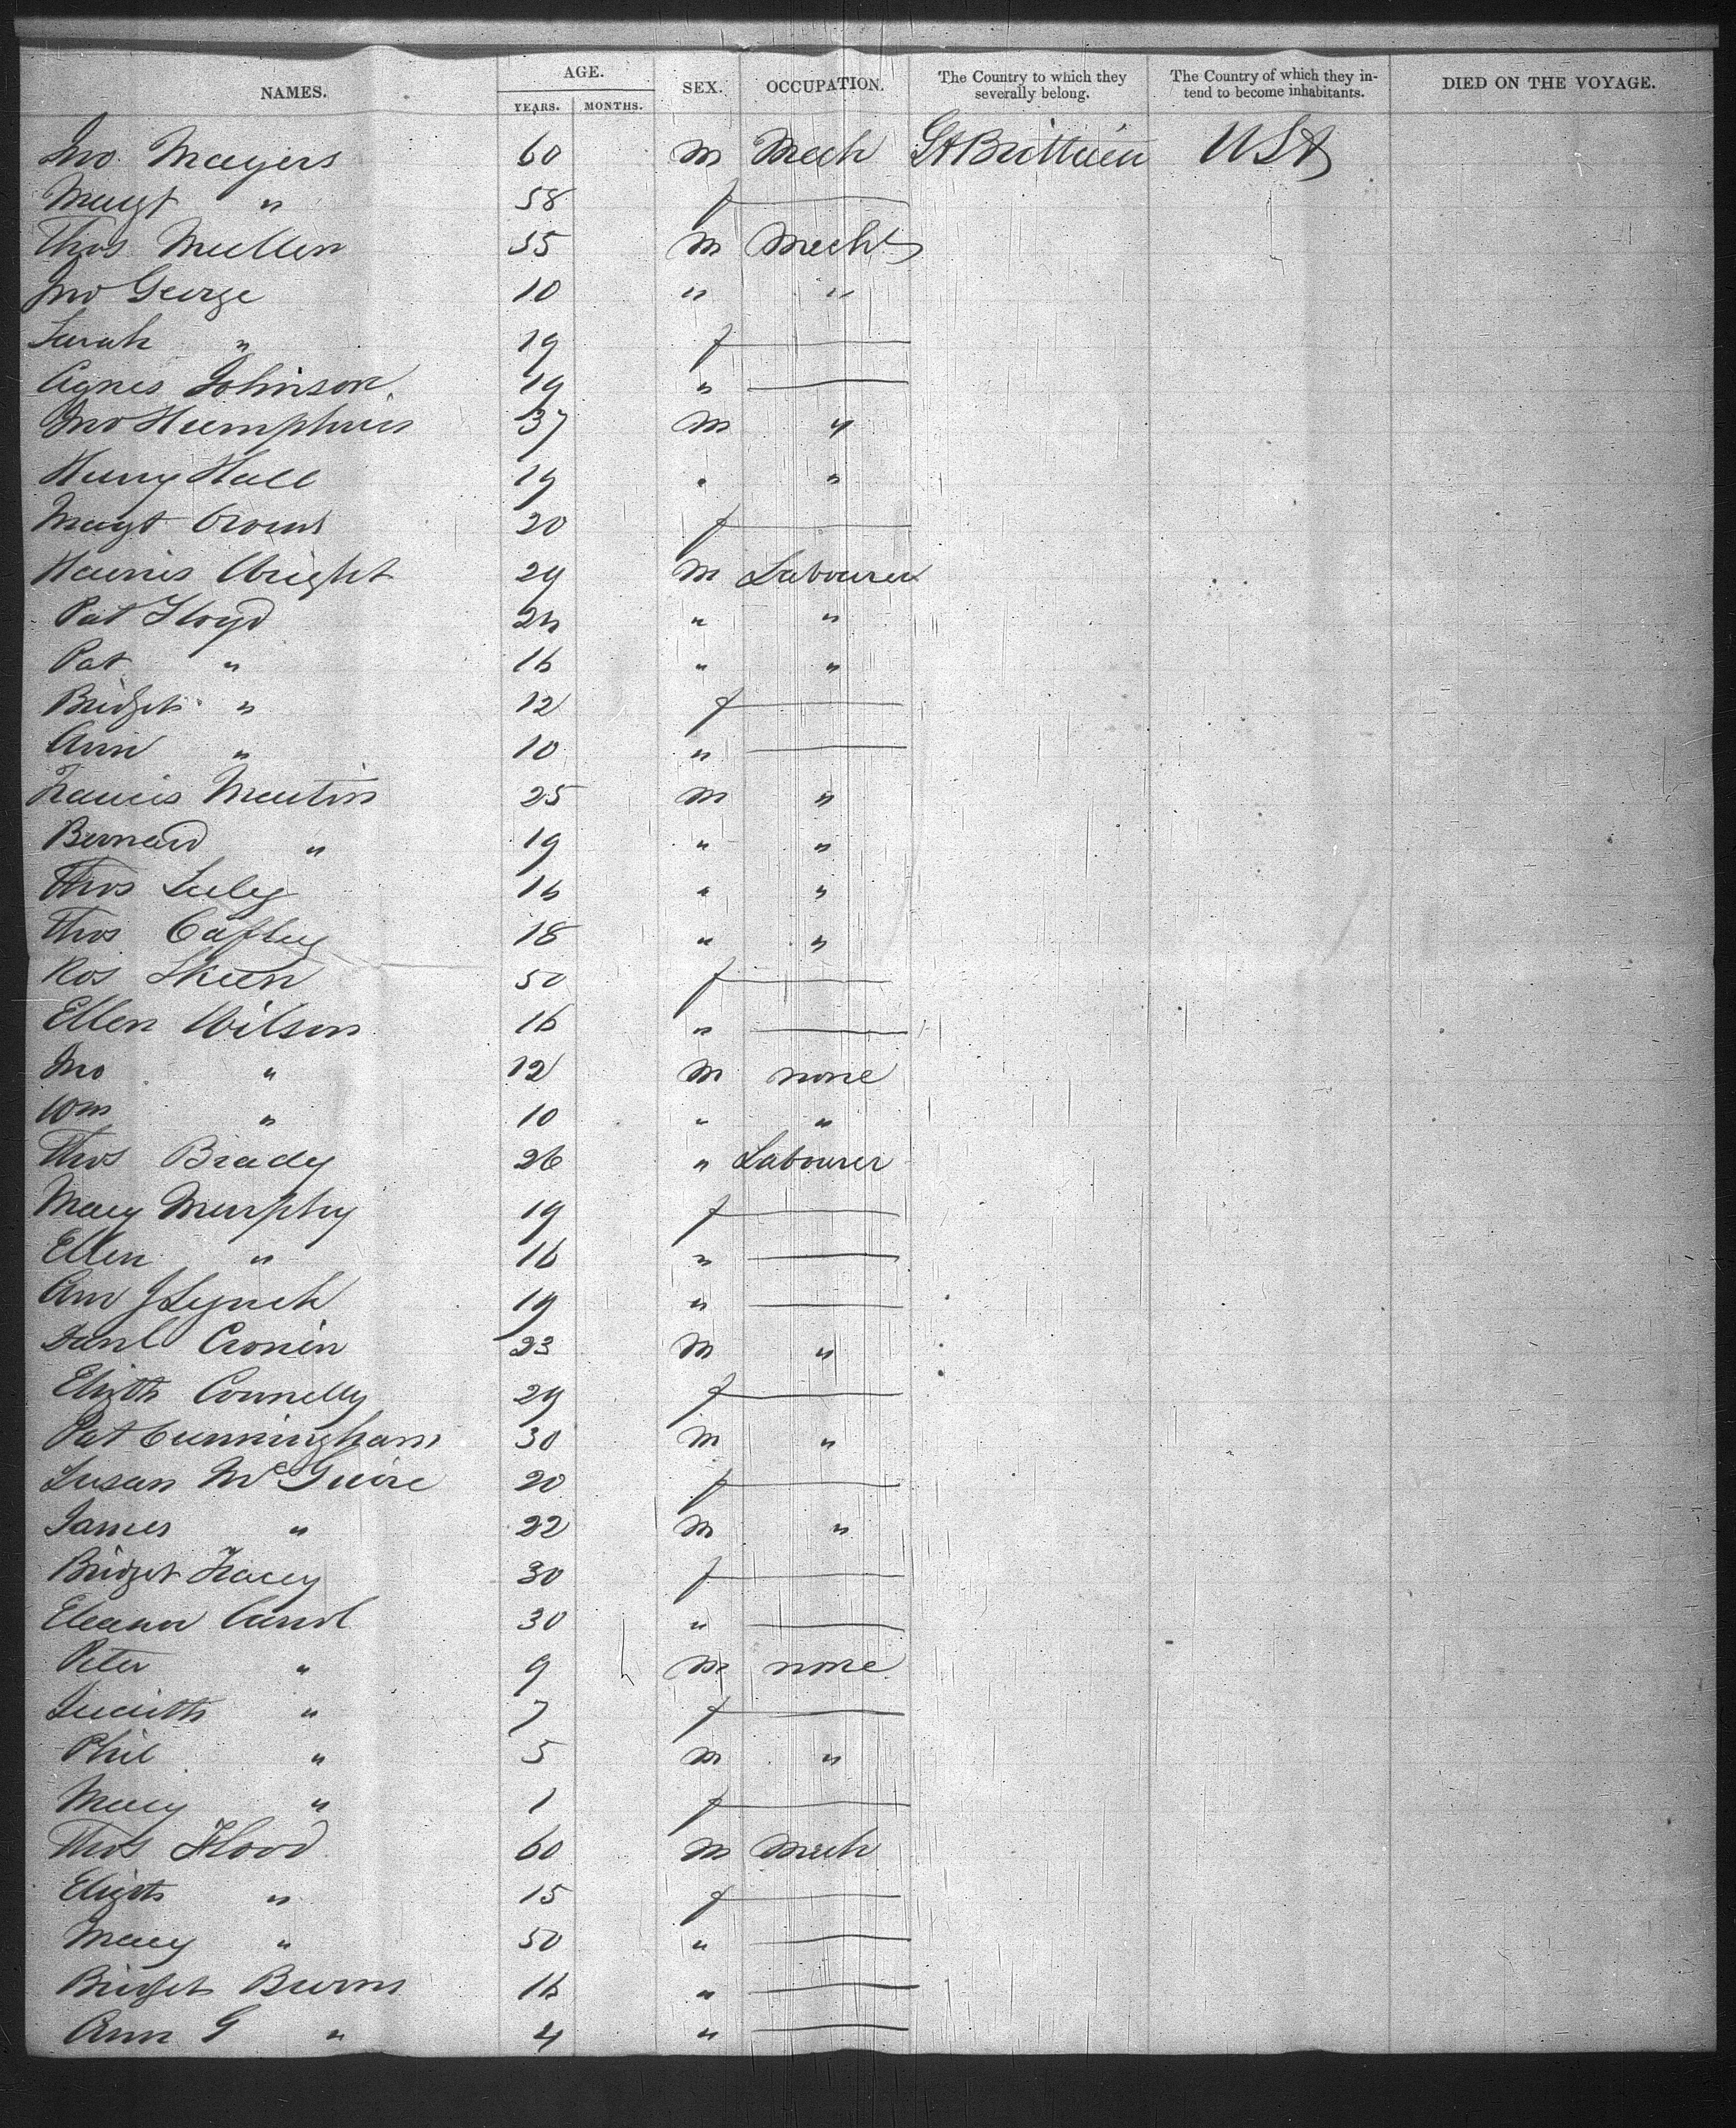 NAMES. AGE. SEX. OCCUPATION. The Country to which they severally belong. The Country of which they intend to become inhabitants. DIED ON THE VOYAGE.
YEARS. MONTHS.
Jno Mayers 60 m Mech Gt Brittain USA
Magt " 58 f —
Thos Mullen 35 m Mech
Jno George 10 " "
Sarah " 19 f —
Agnes Johnson 19 " —
Jno Humphries 37 m "
Henry Hall 19 " "
Magt Owens 20 f —
Wright 29 m Labourer
Pat Floyd 24 " "
Pat " 16 " "
Bridget " 12 f —
Ann " 10 " —
Francis Martin 25 m "
Bernard " 19 " "
Thos 16 " "
Thos Cafley 18 " "
Ros Skeen 50 f —
Ellen Wilson 16 " —
Jno " 12 m none
Wm " 10 " "
Thos Brady 26 " Labourer
Mary Murphy 19 f —
Ellen " 16 " —
Ann J Lynch 19 " —
Danl Cronin 23 m "
Elizth Connelly 29 f —
Pat Cunningham 30 m "
Susan McGuire 20 f —
James " 22 m "
Bridget Tracey 30 f —
Eleanor Carrol 30 " —
Peter " 9 m none
" 7 f —
Phil " 5 m "
Mary " 1 f —
Thos Flood 60 m Mech
Elizth " 15 f —
Mary " 50 " —
Bridget Burns 16 " —
Ann G " 4 " —